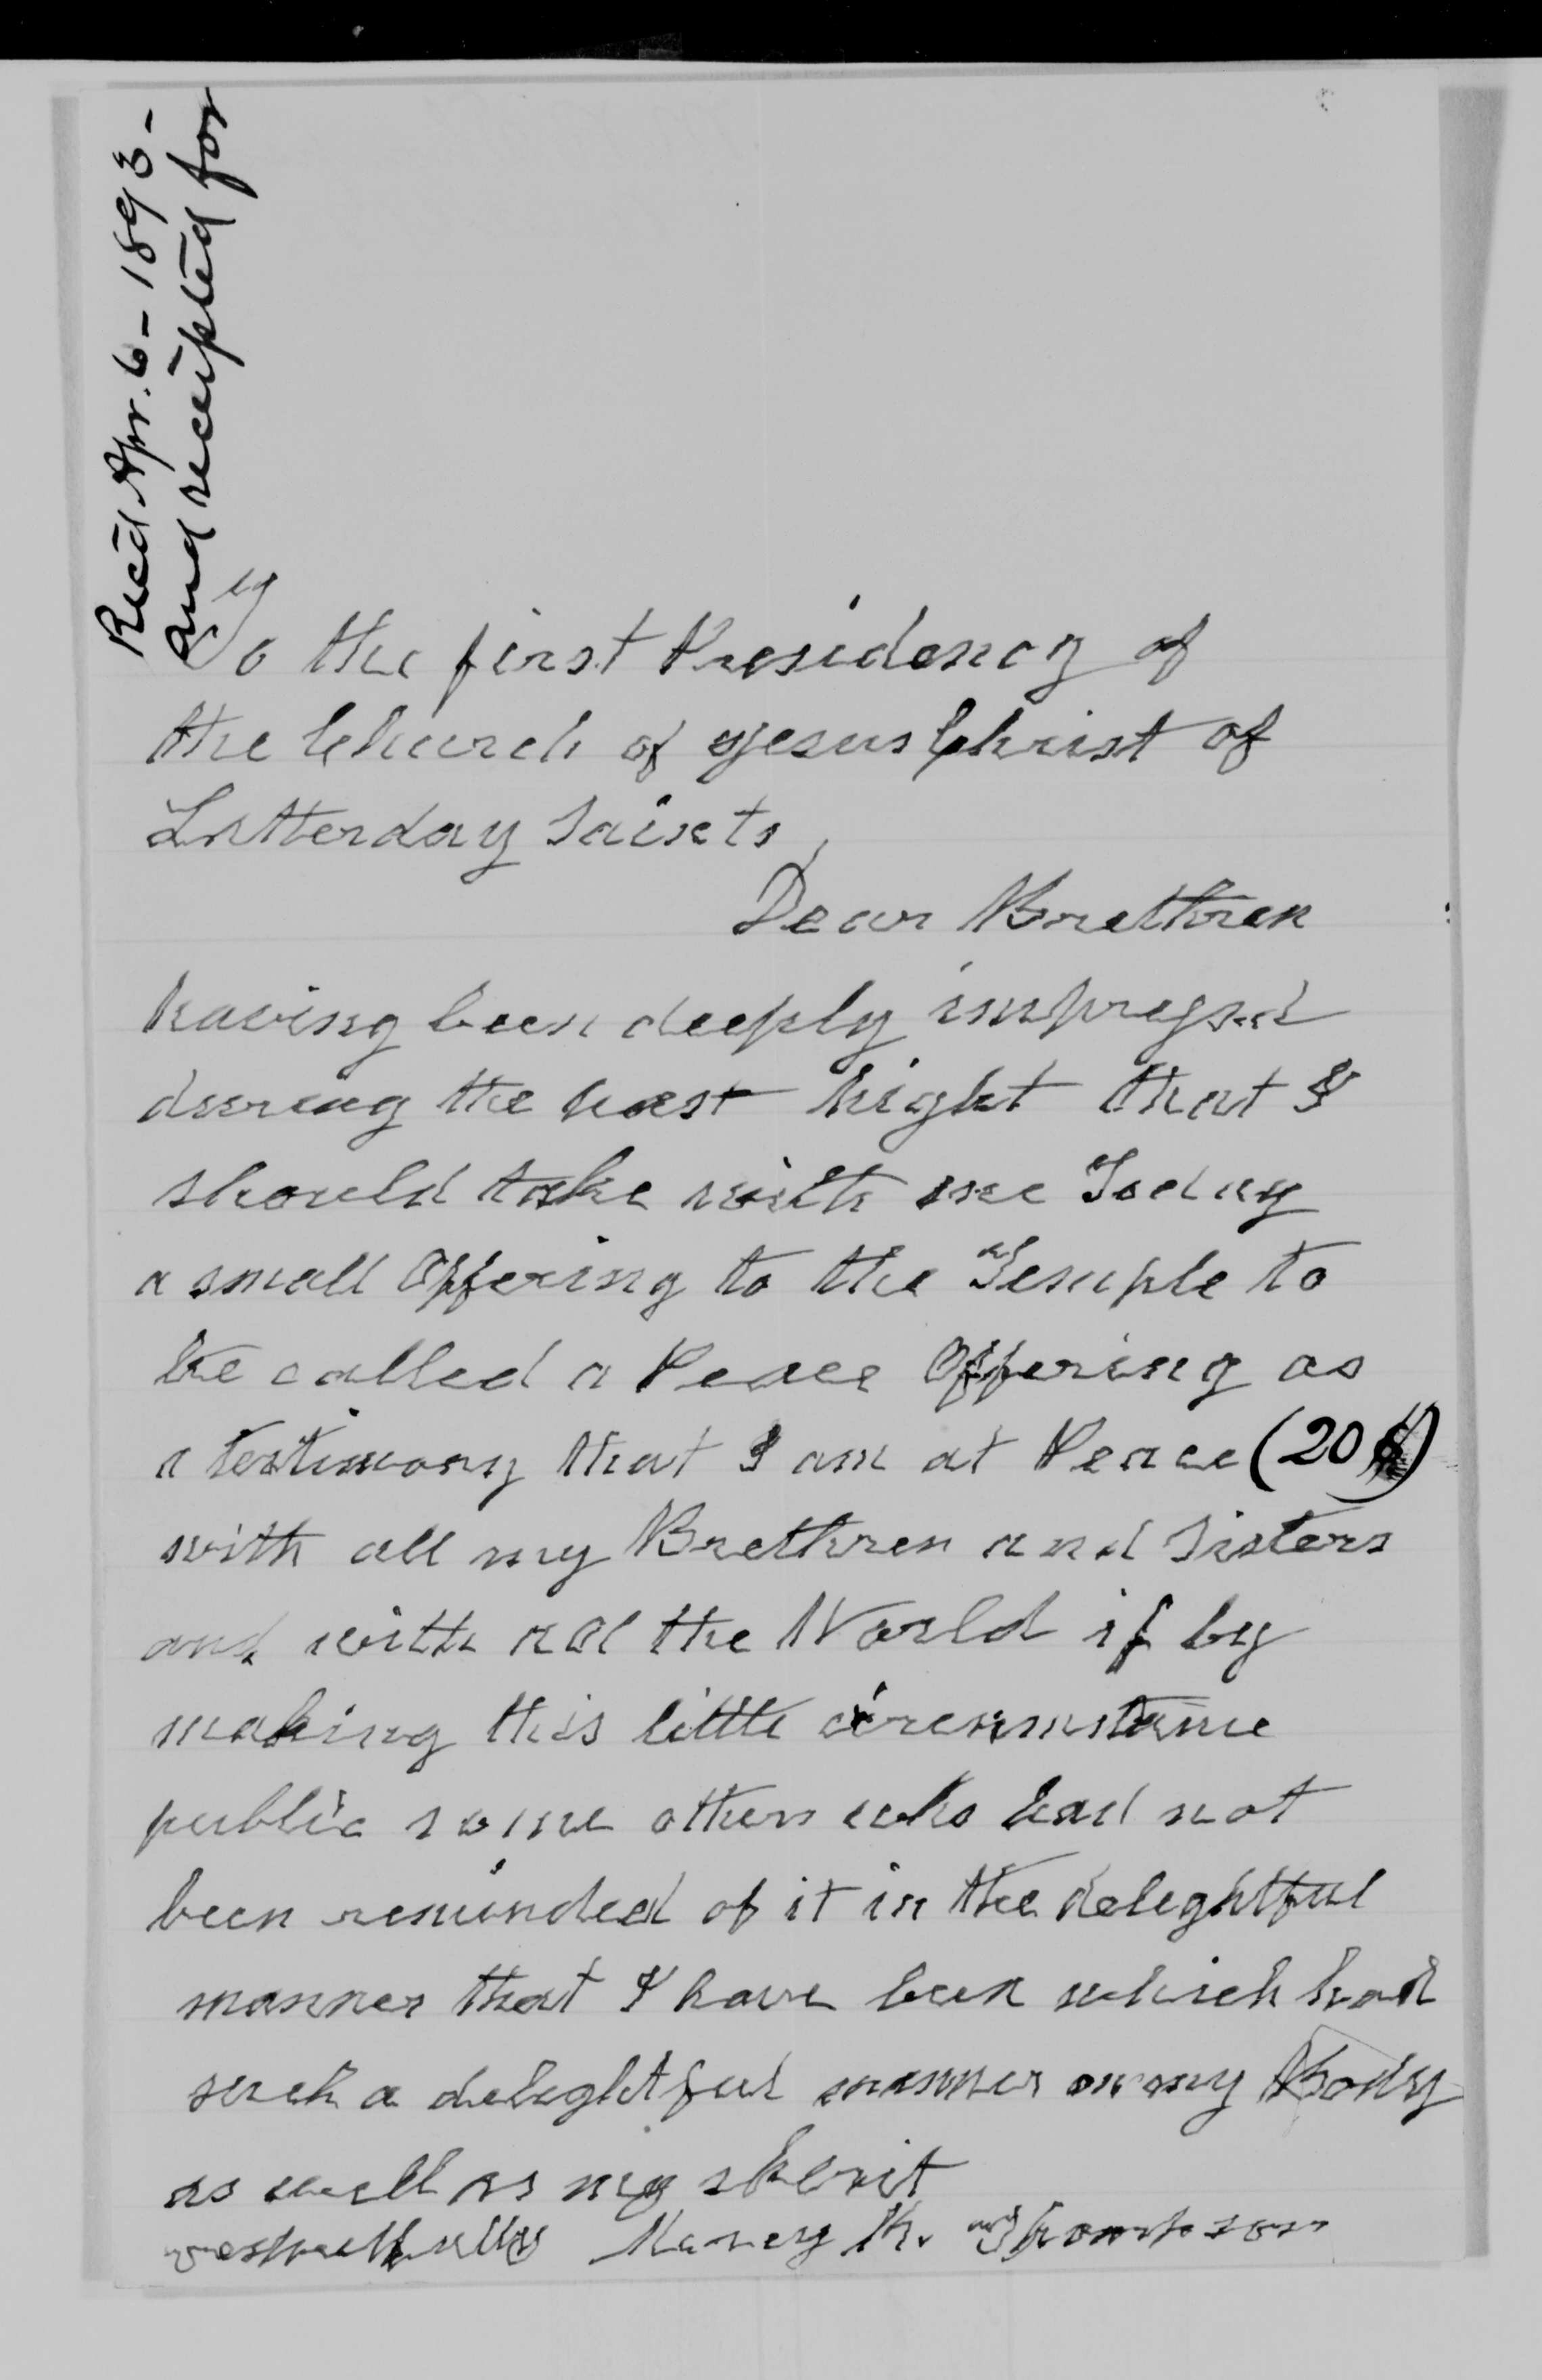 Recd Apr. 6 - 1893 -
and receipted for
To the first Presidency of
the Church of Jesus Christ of
Latterday Saints,
Dear Brethren
having been deeply impressd
during the past night that I
should take with me Today
a small Offering to the Temple to
be called a Peace Offering as
a testimony that I am at Peace (20 $)
with all my Brethren and Sisters
and with all the World if by
making this little circumstance
public some others who had not
been reminded of it in the deleghtful
manner that I have been which had
such a deleghtful manner on my Body
as well as my spirit
respectfully Mercy R. Thompson